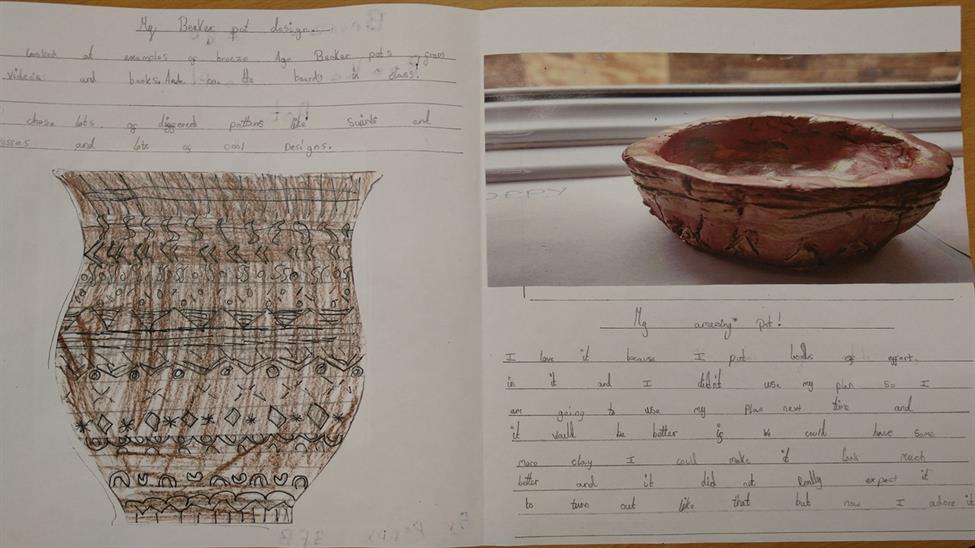 My Beaker pot design.
looked at examples of breeze Age Beaker pots from
videos and books. And on the boards in class.
chose lots of different pattens like swirls and
and lots of cool Designs.
My amazing pot!
I love it because I put loads of effort.
in it and I didn't use my plan so I
am going to use my plan next time and
it would be better if we could have some
more clay I could make it look much
better and it did not Really expect it
to turn out like that but now I adore it